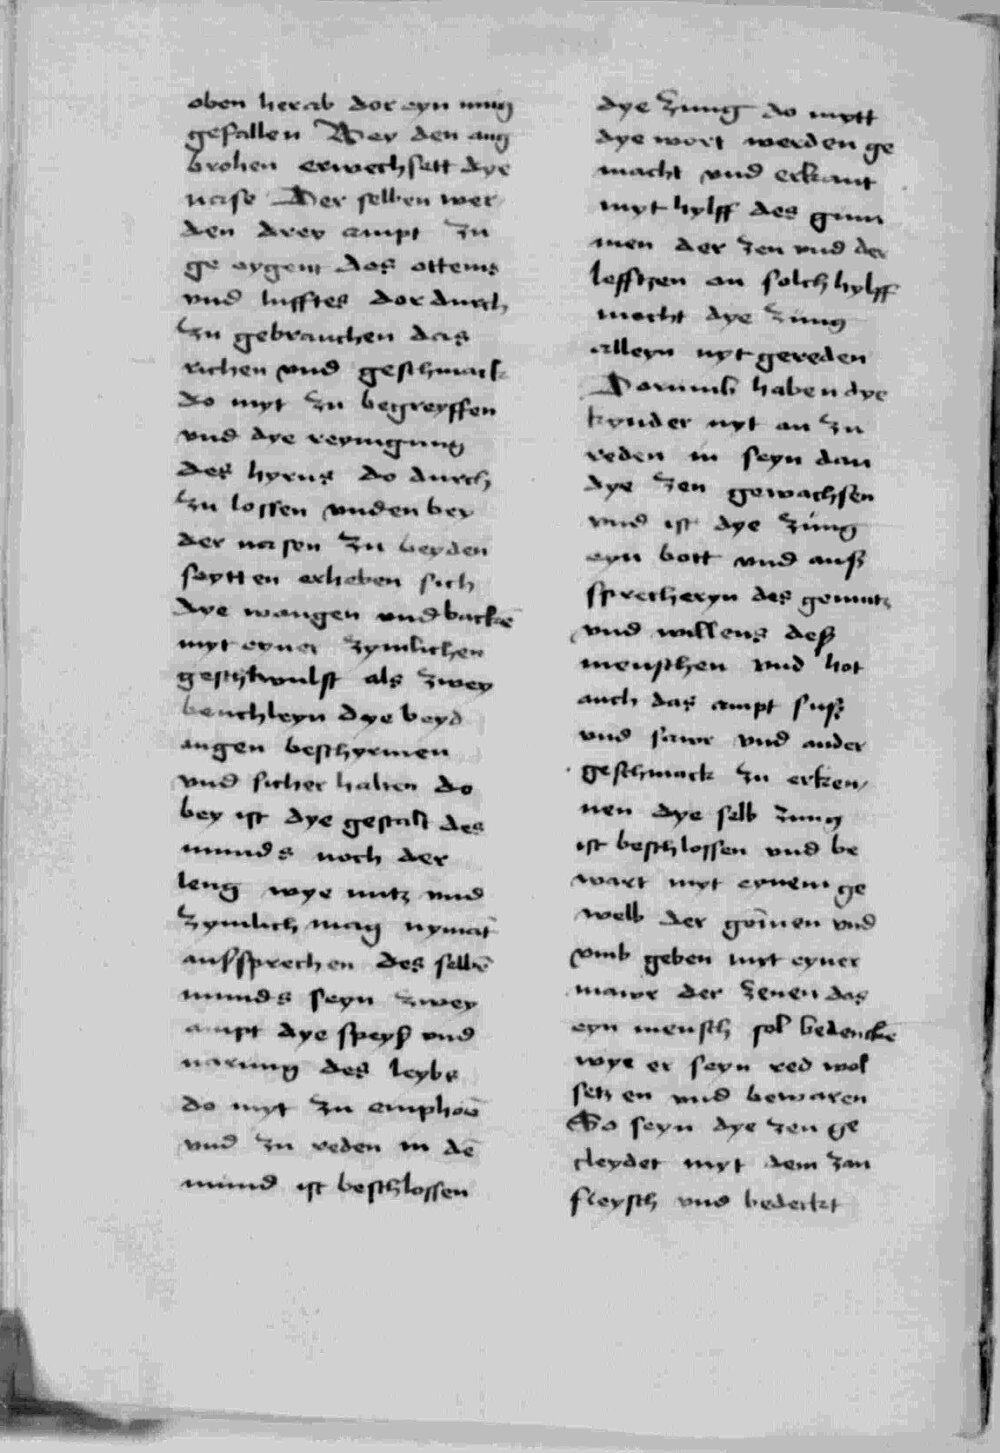 oben herab dor eyn mug
gefallen Bey den aug
brohen erwechsatt dye
nase Der selben wer
den drey ampt zu
ge oygent das ottems
vnd lufftes dor durch
zu gebrauchen das
richen vnd geschmack
do myt zu begreyffen
vnd dye reynigung
des hyrns do durch
zu lossen vnden bey
der nasen zu beyden
seytten erheben sich
dye wangen vnd backē
myt eyner zymlichen
geschwulst als zwey
beuchleyn dye beyd
augen beschyrmen
vnd sicher halten do
bey ist dye gestalt des
munds noch der
leng wye nutz vnd
zymlich mag nymāt
aussprechen des selbē
munds seyn zwey
ampt dye speyß vnd
narung des leybs
do myt zu emphoē
vnd zu reden in dē
mund ist beschlossen
dye zung do mytt
dye wort werden ge
macht vnd erkant
myt hylff des gum
men der zen vnd der
lefftzen on solch hylff
mocht dye zung
alleyn nyt gereden
Dorumb haben dye
kynder nyt an zu
reden in seyn dan
dye zen gewachsen
vnd ist dye zung
eyn bott vnd auß
sprecheryn des gemutz
vnd willens deß
menschen vnd hot
auch das ampt suß
vnd sawr vnd ander
geschmack zu erken
nen dye selb zung
ist beschlossen vnd be
wart myt eynem ge
welb der gōmen vnd
vmb geben myt eyner
mawr der zenen das
eyn mensch sol bedenckē
wye er seyn red wol
setzen vnd bewaren
So seyn dye zen ge
cleydet myt dem zan
fleysch vnd bedeckt